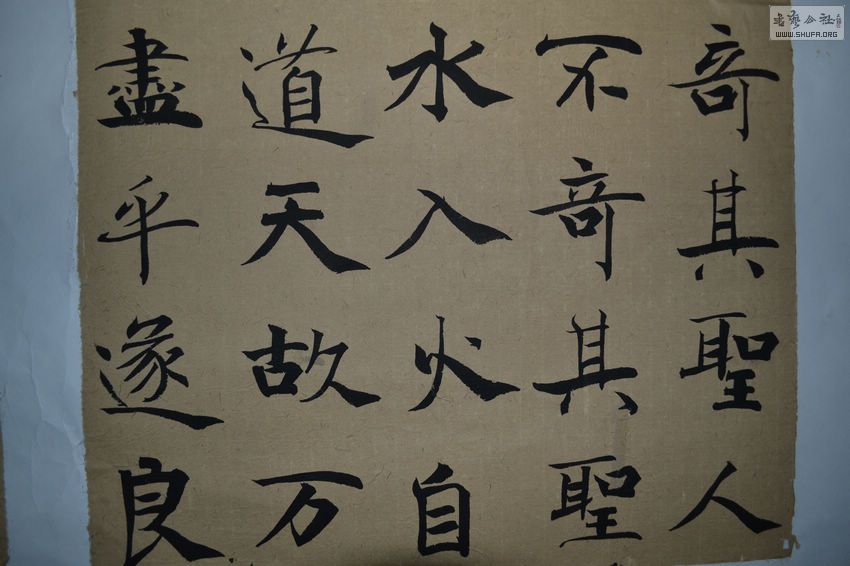 竒其聖人
不竒其聖
水入火自
道天故万
盡乎遂良
書藝公社
WWW.SHUFA.ORG